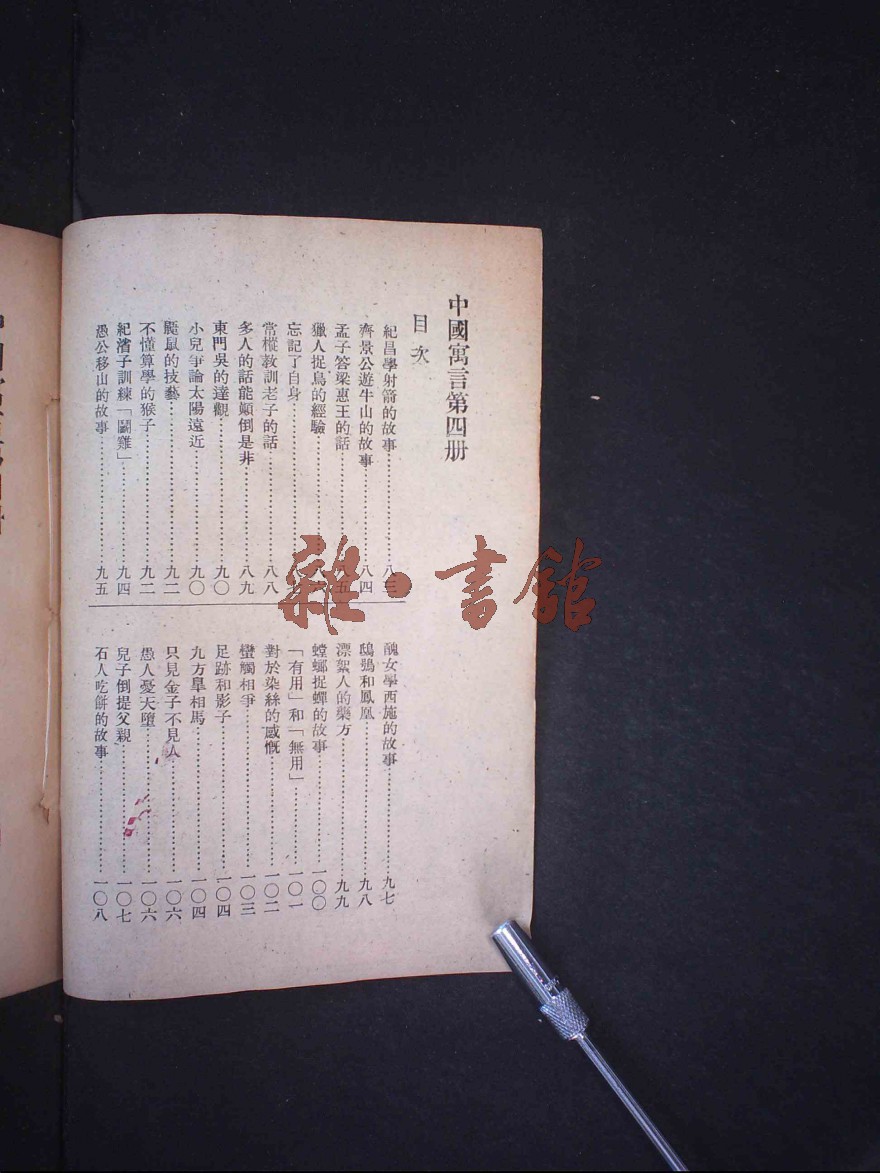 中國寓言第四册
目次
紀昌學射箭的故事……八三
齊景公遊牛山的故事……八四
孟子答梁惠王的話……八五
獵人捉鳥的經驗……八六
忘記了自身……八七
常樅教訓老子的話……八八
多人的話能顚倒是非……八九
東門吳的達觀……九〇
小兒爭論太陽遠近……九〇
鼯鼠的技藝……九二
不懂算學的猴子……九二
紀渻子訓練「鬬雞」……九四
愚公移山的故事……九五
醜女學西施的故事……九七
鴟鴞和鳳凰……九八
漂絮人的藥方……九九
螳螂捉蟬的故事……一〇〇
「有用」和「無用」……一〇一
對於染絲的感慨……一〇二
蠻觸相爭……一〇三
足跡和影子……一〇四
九方臯相馬……一〇四
只見金子不見人……一〇六
愚人憂天墮……一〇六
兒子倒提父親……一〇七
石人吃餅的故事……一〇八
雜·書館